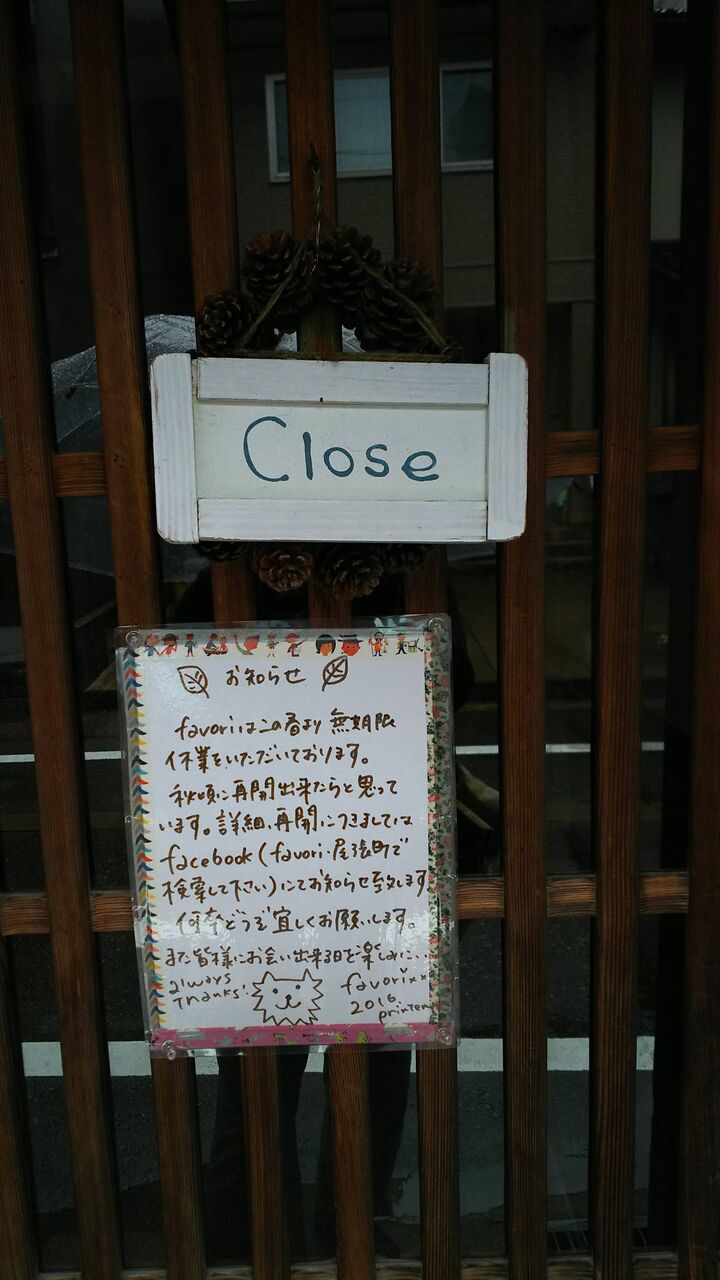 Close
お知らせ
favoriはこの春より無期限
休業をいただいております。
秋頃に再開出来たらと思って
います。詳細、再開につきましては
facebook(favori・尾張町で
検索して下さい)にてお知らせ致します
何卒どうぞ宜しくお願いします。
また皆様にお会い出来る日を楽しみに...
always
Thanks!
favorixx
2016
printemps